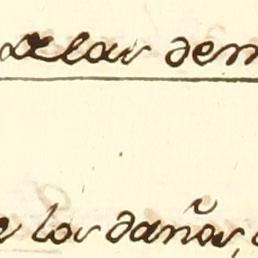 delas dem
e los daños, e